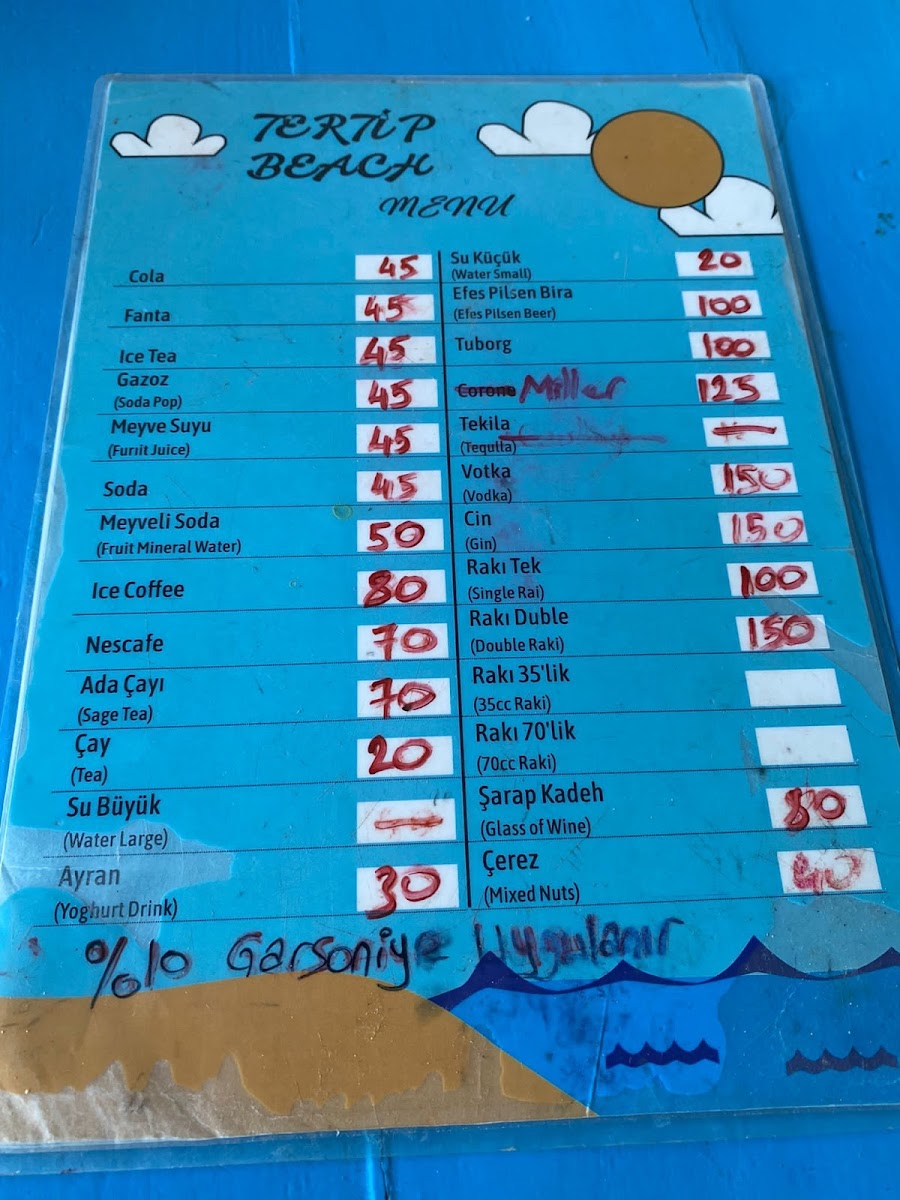 TERTİP
BEACH
MENU
Cola 45
Fanta 45
Ice Tea 45
Gazoz
(Soda Pop) 45
Meyve Suyu
(Furiit Juice) 45
Soda 45
Meyveli Soda
(Fruit Mineral Water) 50
Ice Coffee 80
Nescafe 70
Ada Çayı
(Sage Tea) 70
Çay
(Tea) 20
Su Büyük
(Water Large) —
Ayran
(Yoghurt Drink) 30
Su Küçük
(Water Small) 20
Efes Pilsen Bira
(Efes Pilsen Beer) 100
Tuborg 100
Corona Miller 125
Tekila
(Tequila) —
Votka
(Vodka) 150
Cin
(Gin) 150
Rakı Tek
(Single Rai) 100
Rakı Duble
(Double Raki) 150
Rakı 35'lik
(35cc Raki)
Rakı 70'lik
(70cc Raki)
Şarap Kadeh
(Glass of Wine) 80
Çerez
(Mixed Nuts) 40
%10 Garsoniye Uygulanır